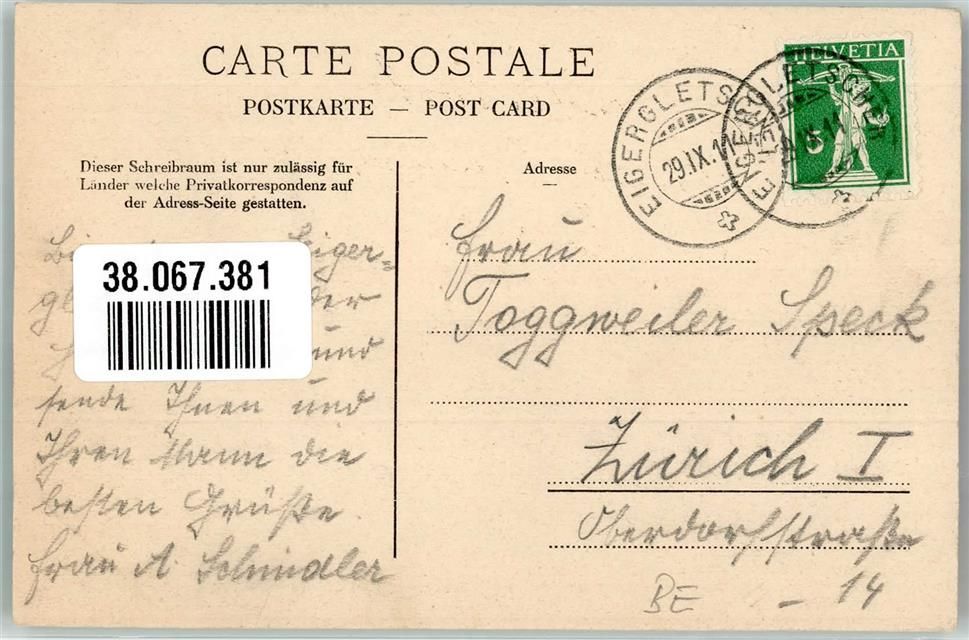 CARTE POSTALE
POSTKARTE — POST CARD
Dieser Schreibraum ist nur zulässig für
Länder welche Privatkorrespondenz auf
der Adress-Seite gestatten.
Adresse
HELVETIA
5
EIGERGLETSCHER
29.IX.11
EIGERGLETSCHER
38.067.381
Eiger=
und
sende Ihnen und
Ihren Mann die
besten Grüße
Frau A. Schindler
Frau
Toggweiler Speck
Zürich I
Oberdorfstraße
14
BE